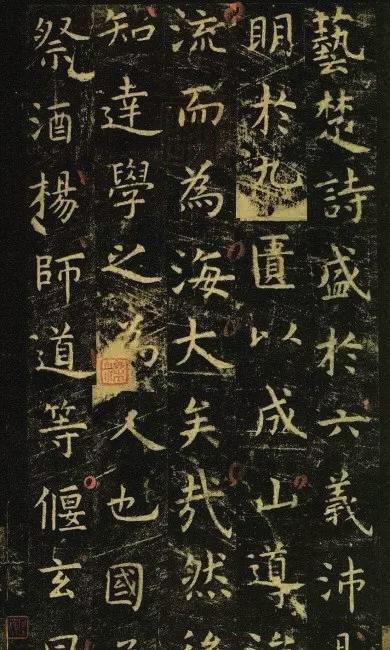 藝楚詩盛於六義沛
眀於九匱以成山導
流而為海大矣哉然
知達學之為人也國
祭酒楊師道等偃玄